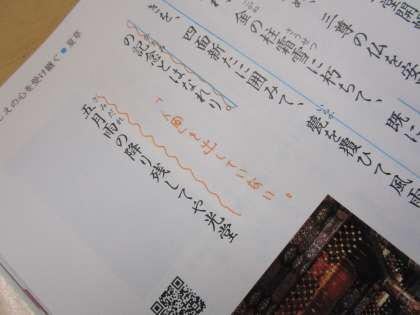 堂開
三尊の仏を安
金の柱霜雪に朽ちて、既に
四面新たに囲みて、甍を覆ひて風雨
の記念とはなれり。
色を出していない。
五月雨の降り残してや光堂
しえの心を受け継ぐ ● 夏草